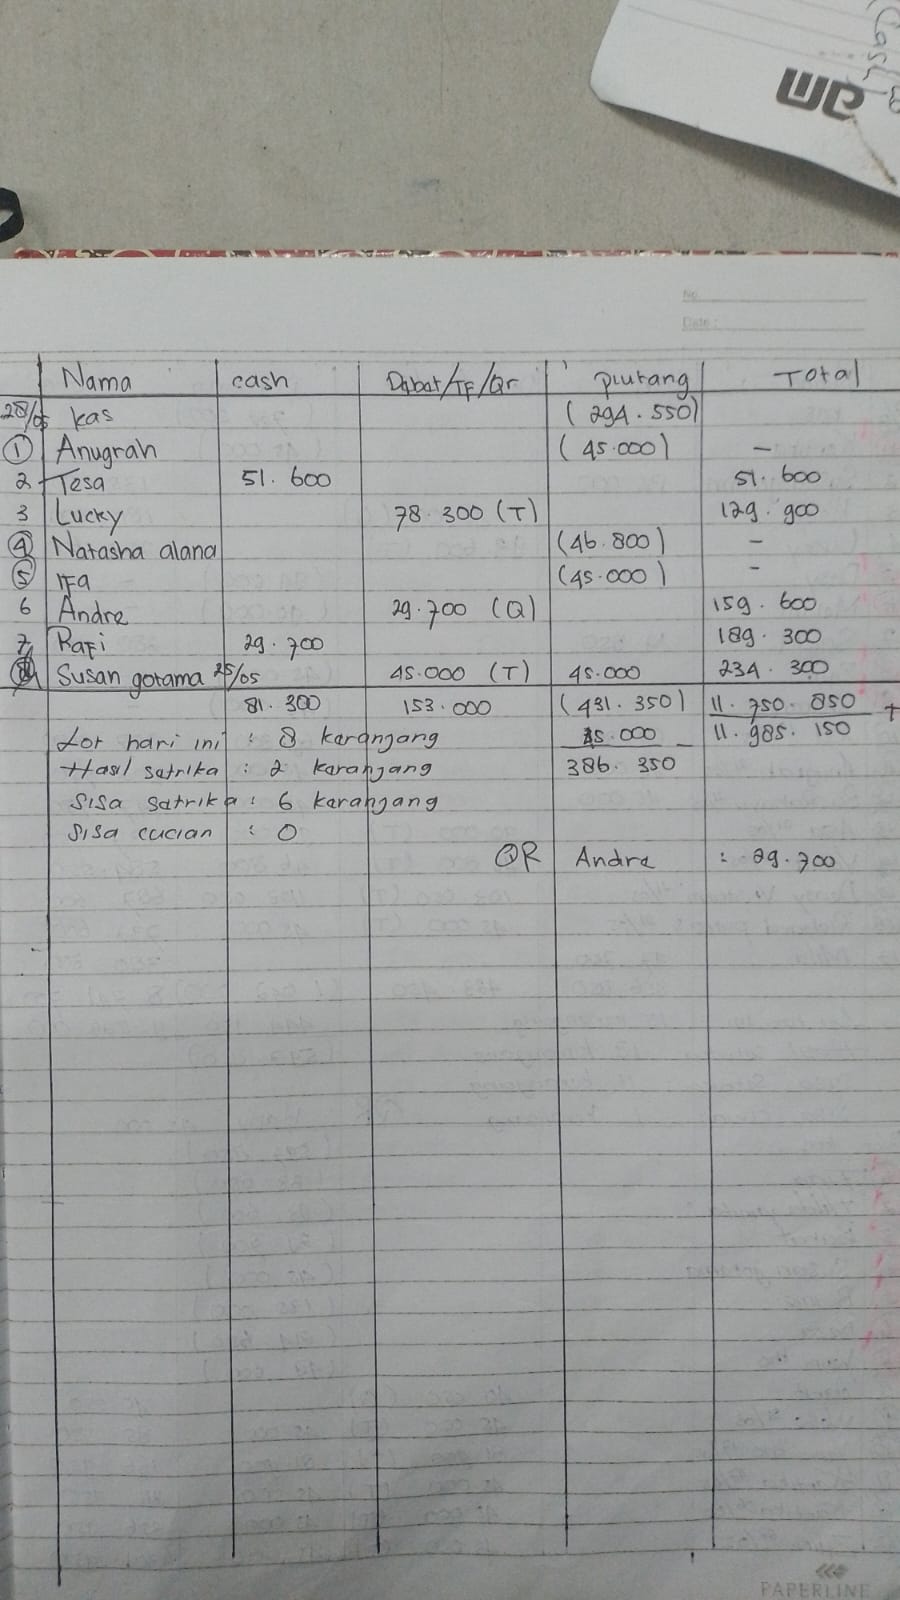 Cash
we
No
Date:
Nama cash Dabat/TF/Qr piutang Total
28/05 kas (294.550)
1 Anugrah (45.000) -
2 Tesa 51.600 51.600
3 Lucky 78.300 (T) 129.900
4 Natasha alana (46.800) -
5 IFa (45.000) -
6 Andre 29.700 (Q) 159.600
7 Rafi 29.700 189.300
8 Susan gotama 25/05 45.000 (T) 45.000 234.300
81.300 153.000 (431.350) 11.750.850 +
Lot hari ini : 8 karanjang 45.000 - 11.985.150
Hasil satrika : 2 karanjang 386.350
Sisa satrika : 6 karanjang
Sisa cucian : 0
QR Andre : 29.700
PAPERLINE